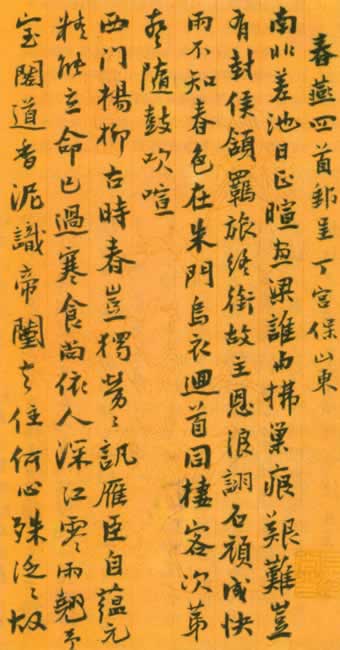 春燕四首郵呈丁宮保山東
南北差池日正暄畫梁誰為拂巢痕艱難豈
有封侯頷羈旅終銜故主恩浪詡石頑成快
雨不知春色在朱門烏衣迴首同棲客次第
隨鼓吹喧
西門楊柳古時春豈獨勞勞訊雁臣自蘊元
精能立命已過寒食尚依人深江零雨翹予
室閣道香泥識帝闉去住何心殊泛泛故